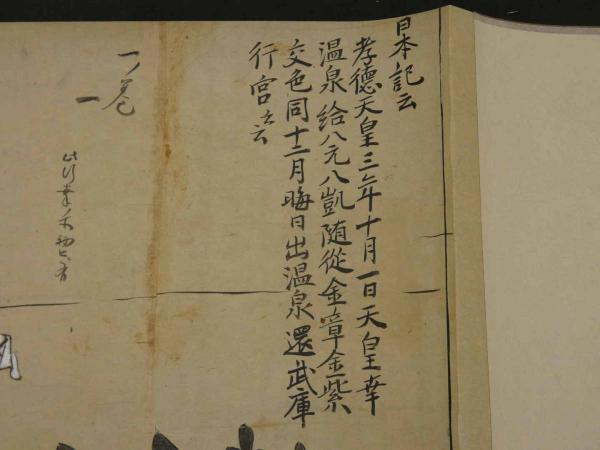 日本記云
孝徳天皇三年十月一日天皇幸
温泉給八元八凱随従金章金紫
交色同十二月晦日出温泉還武庫
行宮云云
一巻
一